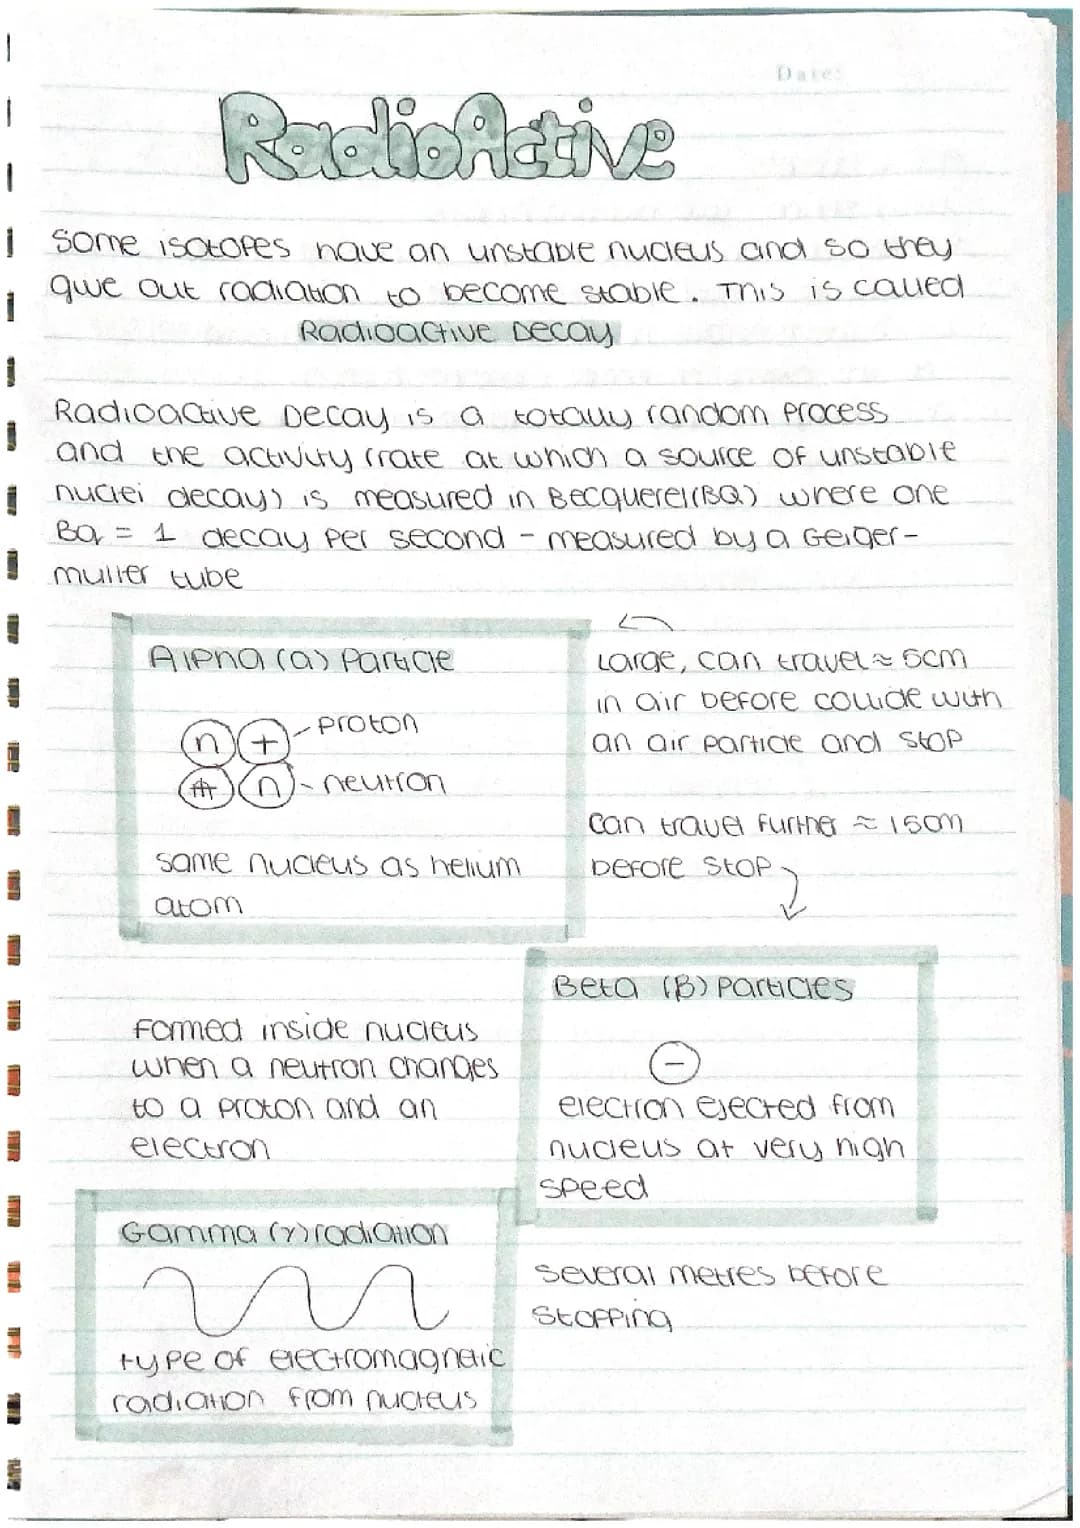 Date:
RadioActive
Some isotopes have an unstable nucleus and so they
give out radiation to become stable. This is called
Radioactive Decay
Radioactive Decay is a totally random process
and the activity (rate at which a source of unstable
nuclei decay) is measured in Becquerel(BQ) where one
Bq = 1 decay per second - measured by a Geiger-
muller tube
Alpha (a) Particle
n + - proton
+ n - neutron
same nucleus as helium
atom
Large, can travel ≈ 5cm
in air before collide with
an air particle and stop
Can travel further ≈ 15cm
before stop
Beta (β) Particles
-
electron ejected from
nucleus at very high
speed
Formed inside nucleus
when a neutron changes
to a proton and an
electron
Gamma (γ) radiation
type of electromagnetic
radiation from nucleus
Several metres before
stopping